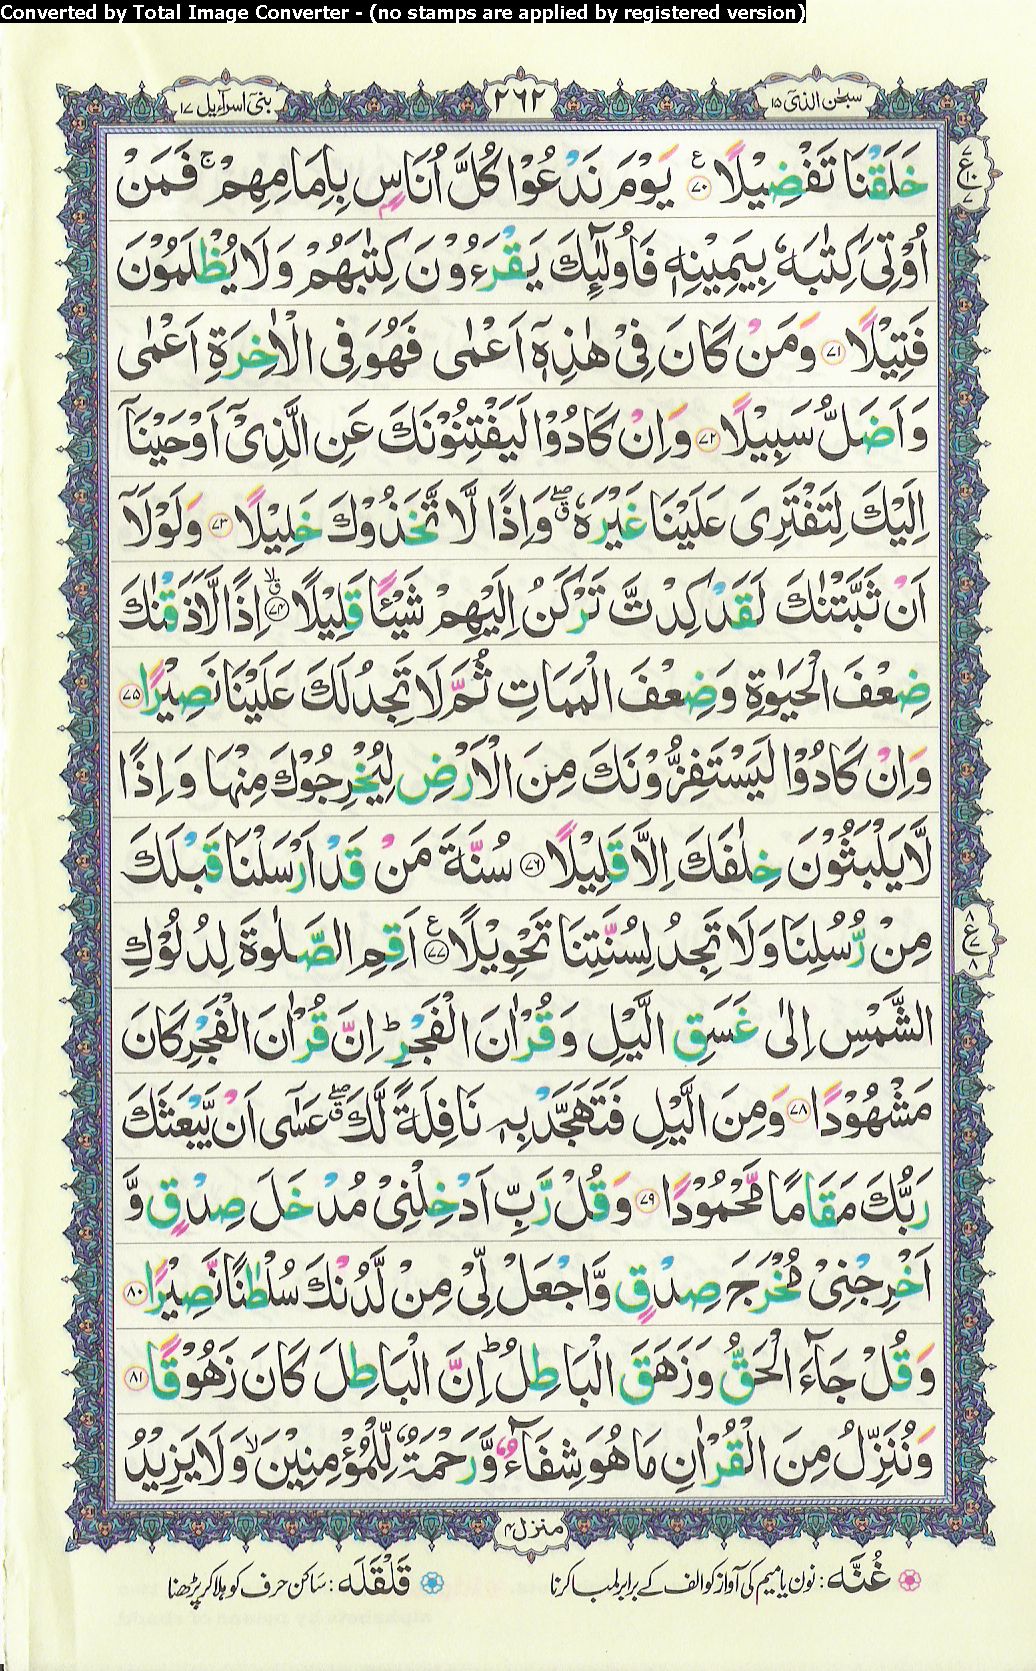 Converted by Total Image Converter - (no stamps are applied by registered version)
سبحٰن الذیٓ ۱۵
۲۶۲
بنیٓ اسرآءیل ۱۷
خَلَقْنَا تَفْضِيْلًا ۷۰ يَوْمَ نَدْعُوْا كُلَّ اُنَاسٍۭ بِاِمَامِهِمْ ۚ فَمَنْ
اُوْتِيَ كِتٰبَهٗ بِيَمِيْنِهٖ فَاُولٰٓئِكَ يَقْرَءُوْنَ كِتٰبَهُمْ وَلَا يُظْلَمُوْنَ
فَتِيْلًا ۷۱ وَمَنْ كَانَ فِيْ هٰذِهٖٓ اَعْمٰى فَهُوَ فِي الْاٰخِرَةِ اَعْمٰى
وَاَضَلُّ سَبِيْلًا ۷۲ وَاِنْ كَادُوْا لَيَفْتِنُوْنَكَ عَنِ الَّذِيْٓ اَوْحَيْنَآ
اِلَيْكَ لِتَفْتَرِيَ عَلَيْنَا غَيْرَهٗ ۖق وَاِذًا لَّا تَّخَذُوْكَ خَلِيْلًا ۷۳ وَلَوْلَآ
اَنْ ثَبَّتْنٰكَ لَقَدْ كِدْتَّ تَرْكَنُ اِلَيْهِمْ شَيْـًٔا قَلِيْلًا ۷۴ اِذًا لَّاَذَقْنٰكَ
ضِعْفَ الْحَيٰوةِ وَضِعْفَ الْمَمَاتِ ثُمَّ لَا تَجِدُ لَكَ عَلَيْنَا نَصِيْرًا ۷۵
وَاِنْ كَادُوْا لَيَسْتَفِزُّوْنَكَ مِنَ الْاَرْضِ لِيُخْرِجُوْكَ مِنْهَا وَاِذًا
لَّا يَلْبَثُوْنَ خِلٰفَكَ اِلَّا قَلِيْلًا ۷۶ سُنَّةَ مَنْ قَدْ اَرْسَلْنَا قَبْلَكَ
مِنْ رُّسُلِنَا وَلَا تَجِدُ لِسُنَّتِنَا تَحْوِيْلًا ۷۷ اَقِمِ الصَّلٰوةَ لِدُلُوْكِ
الشَّمْسِ اِلٰى غَسَقِ الَّيْلِ وَقُرْاٰنَ الْفَجْرِ ؕ اِنَّ قُرْاٰنَ الْفَجْرِ كَانَ
مَشْهُوْدًا ۷۸ وَمِنَ الَّيْلِ فَتَهَجَّدْ بِهٖ نَافِلَةً لَّكَ ۖق عَسٰٓى اَنْ يَّبْعَثَكَ
رَبُّكَ مَقَامًا مَّحْمُوْدًا ۷۹ وَقُلْ رَّبِّ اَدْخِلْنِيْ مُدْخَلَ صِدْقٍ وَّ
اَخْرِجْنِيْ مُخْرَجَ صِدْقٍ وَّاجْعَلْ لِّيْ مِنْ لَّدُنْكَ سُلْطٰنًا نَّصِيْرًا ۸۰
وَقُلْ جَآءَ الْحَقُّ وَزَهَقَ الْبَاطِلُ ؕ اِنَّ الْبَاطِلَ كَانَ زَهُوْقًا ۸۱
وَنُنَزِّلُ مِنَ الْقُرْاٰنِ مَا هُوَ شِفَآءٌ وَّرَحْمَةٌ لِّلْمُؤْمِنِيْنَ ۙ وَلَا يَزِيْدُ
منزل ۴
غُنَّه : نون یا میم کی آواز کو الف کے برابر لمبا کرنا
قَلْقَلَه : ساکن حرف کو ہلا کر پڑھنا